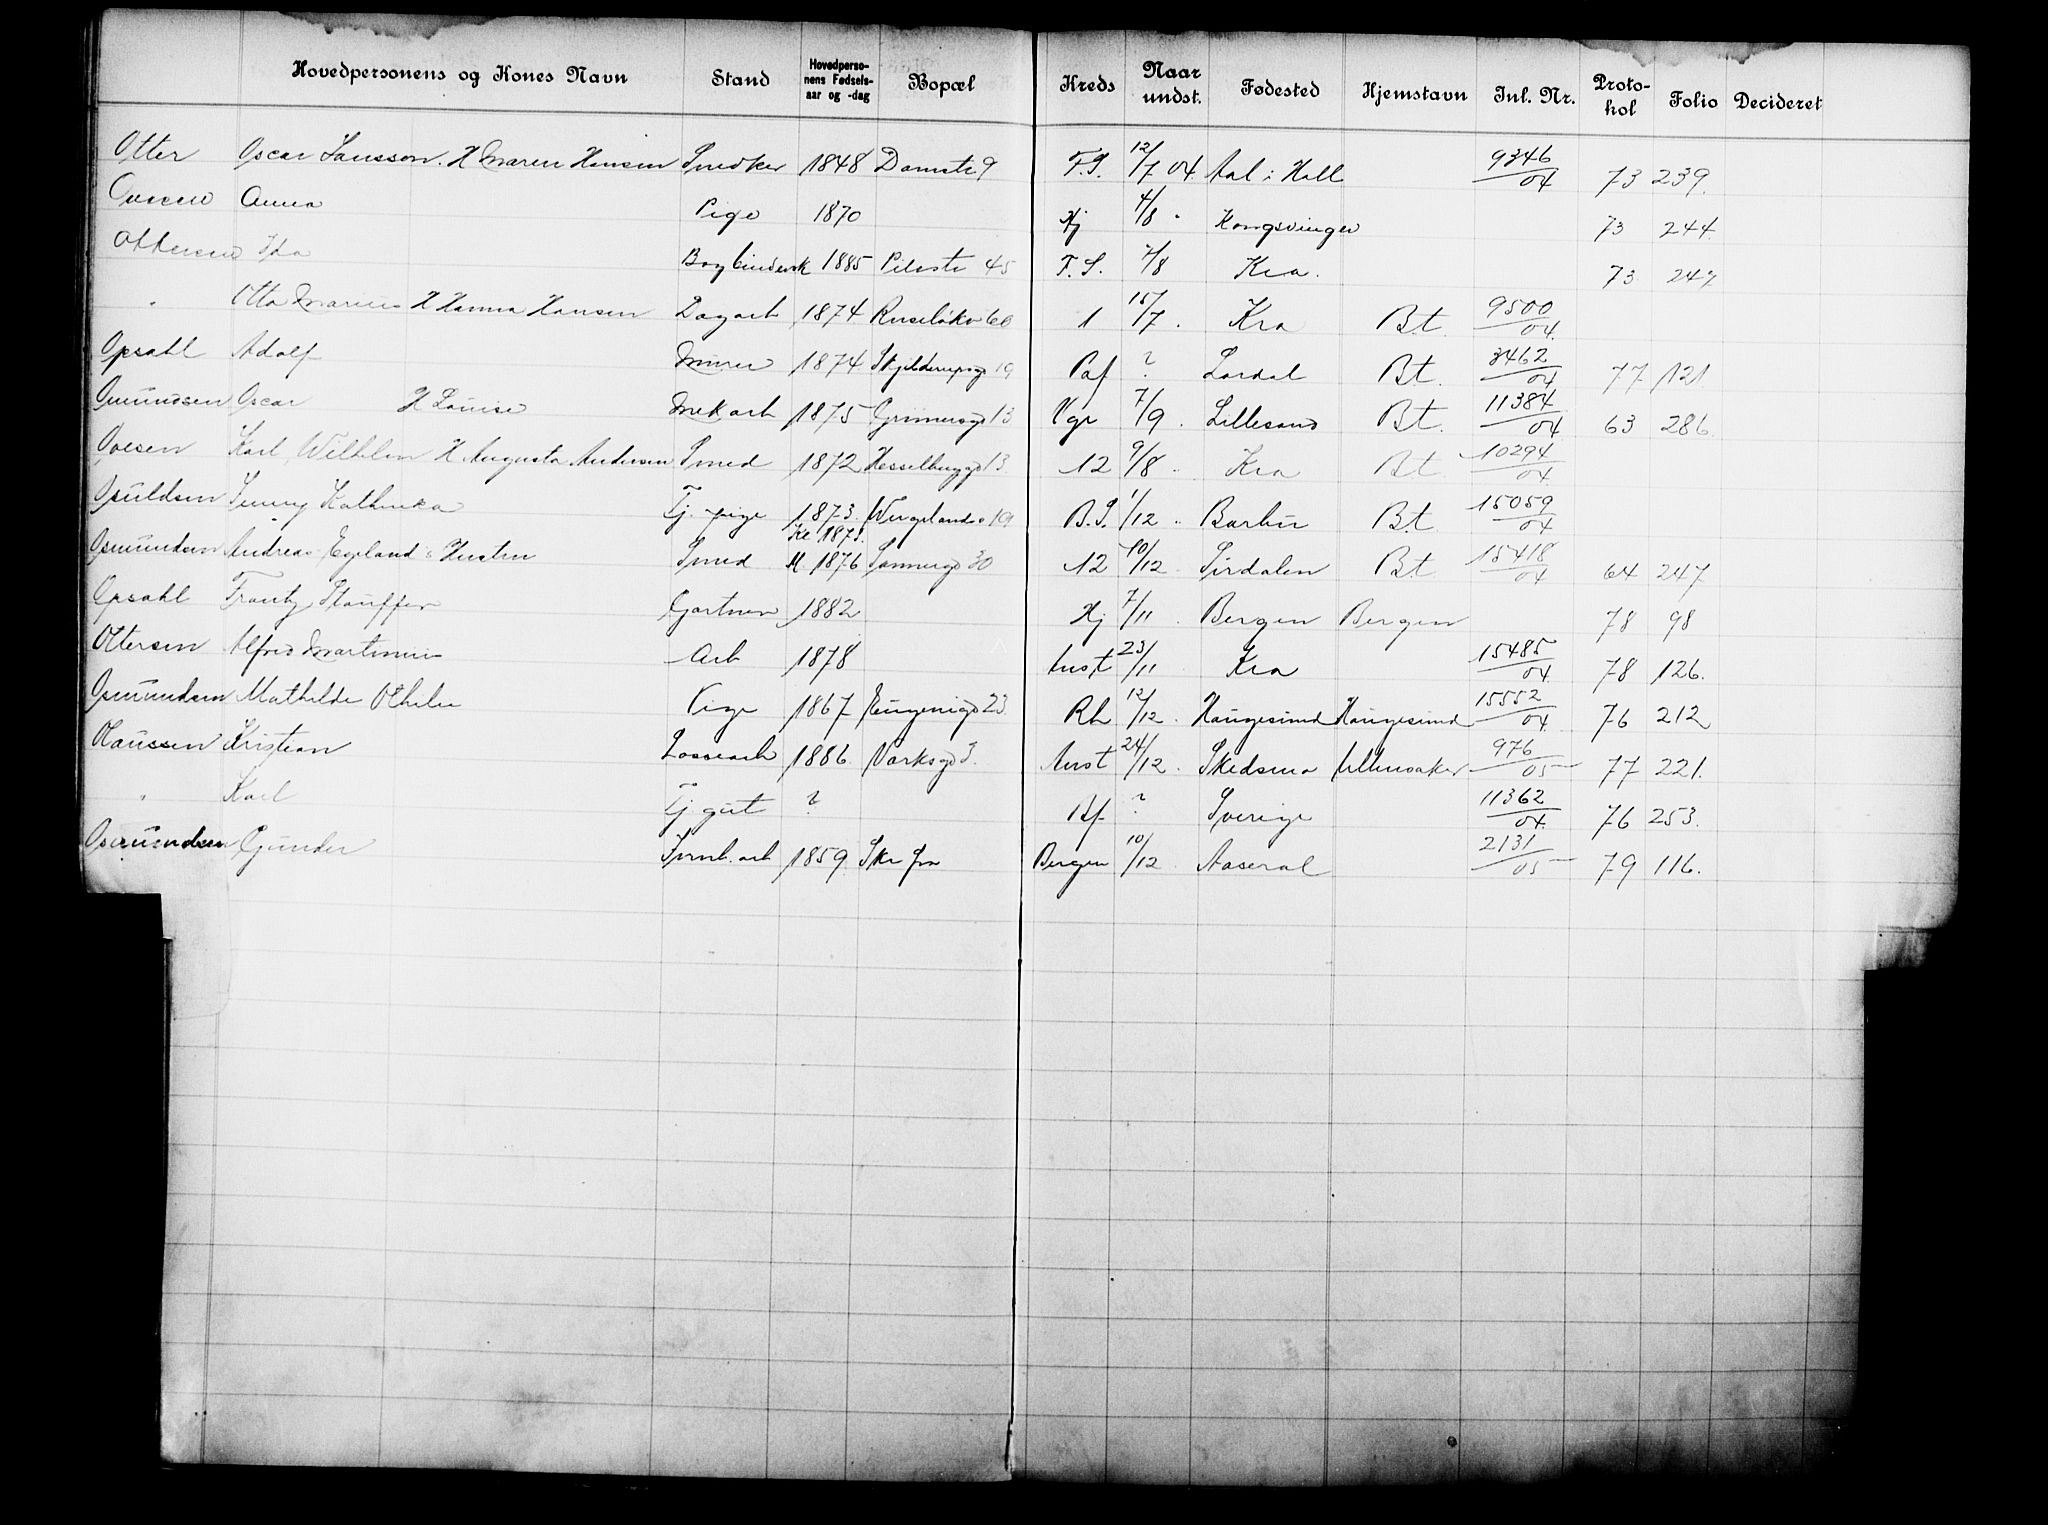 Hovedpersonens og Kones Navn Stand Hovedperso-nens Fødsels-aar og -dag Bopæl Kreds Naar undst. Fødested Hjemstavn Inl. Nr. Proto-kol Folio Decideret
Otter Oscar Larsson. H Maren Hansen Snedker 1848 Damstr 9 F.S. 12/7 04. Aal i Hall 9346/04 73 239.
Anna Pige 1870 Hj 4/8 " Kongsvinger 73 244.
Ottersen Ida Bogbindersk 1885 Pilestr 45 F.S. 7/8 Kra. 73 247
" Otto Marius H Hanna Hansen Dagarb 1874 Ruseløkv 60 1 15/7 . Kra Bt. 9500/04.
Opsahl Adolf Murer 1874 Skjelderupsg 19 Paf ? Lardal Bt. 3462/04 77 121
Omundsen Oscar H Louise Mekarb 1875 Grünersgd 13 Vgr 7/9 . Lillesand Bt. 11384/04 63 286
Ovesen Karl Wilhelm H Augusta Andersen Smed 1872 Hesselbuggt 13. 12 9/8 .. Kra Bt 10294/04.
Osuldsen Jenny Kathinka Tj. pige 1873. Wergelandsv 19 B.S. 1/12 .. Barbu Bt. 15059/04
Osmundsen Andreas Egeland & Hustru Smed Ke 1873. M 1876 Sannergd 30 12 10/12 . Sirdalen Bt. 15418/04 64 247
Opsahl Frantz Stauffer Gartner 1882 Hj 7/11 . Bergen Bergen 78 98
Ottersen Alfred Martinius Arb 1878 Anst 23/11 Kra 15485/04. 78 126.
Osmundsen Mathilde Othelie Pige 1867 Eugenigd 23. Rh 12/12 . Haugesund Haugesund 15552/04. 76 212
Olaussen Kristian Lossearb 1886. Varksgd 3. Anst 24/12 . Skedsmo Ullensaker 976/05 77 221.
" Karl Tj. gut ? Rf ? Sverige 11362/04. 76 253.
Osmundsen Gunder Jernb. arb 1859. Skr fra Bergen 10/12 . Aaseral 2131/05 79 116.